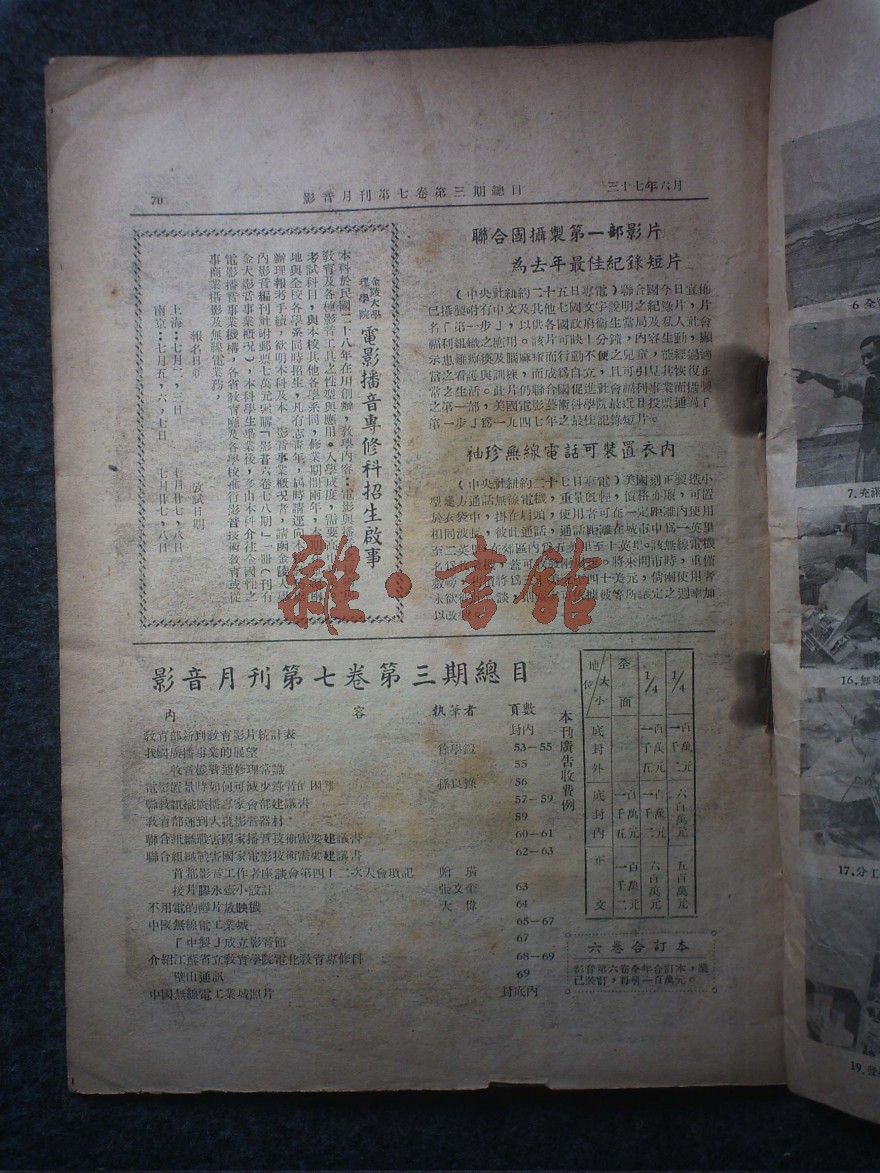 70
影音月刊第七卷第三期總目
三十七年六月
聯合國攝製第一部影片
為去年最佳紀錄短片
（中央社紐約二十五日專電）聯合國今日宣佈
已攝製附有中文及其他七國文字說明之紀錄片，片
名「第一步」，以供各國政府衛生當局及私人社會
福利組織之應用。該片可映十分鐘，內容生動，顯
示患
而行動不便之兒童，能經過適
當之看護與訓練，而成為自立，且可引見其恢復正
常之生活。此片仍聯合國促進社會福利事業而攝製
之第一部，美國電影藝術科學院最近日投票通過「
第一步」為一九四七年之最佳記錄短片。
袖珍無線電話可裝置衣內
（中央社紐約二十七日專電）美國刻正製造小
型雙方通話無線電機，重量
，價格亦廉，可置
於衣袋中，掛在肩頭，使用者可在一定距離內使用
相同波長，彼此通話，通話距離在城市中為一英里
至二英里，在郊區內為五英里至十英里。該無線電機
將來問市時，重僅
四十美元，倘兩使用者
以改
金陵大學
理學院
電影播音專修科招生啟事
本科於民國二十八年在川創辦，教學內容：電影與播音
教育及各種影音工具之性型與應用。入學成度，需要高
考試科目，與本校其他各學系同，修業期間兩年，本期
地與全校各學系同時招生，凡有志青年，屆時請逕向本
辦理報考手續，欲明本科及本
影音事業概況者，請函金陵大學
內影音編刊社附郵票七萬元索購「影音六卷七八期」一冊（刊有
金大影音事業概況），本科學生畢業後，多由本科介往全國性之
電影播音事業機構，各省教育廳及各學校推行影音技術教育或從
事商業攝影及無線電業務。
報名日期
考試日期
上海：七月一，二，三日
七月廿七，八日
南京：七月五，六，七日
七月廿七，八日
雜·書館
影音月刊第七卷第三期總目
內 容 執筆者 頁數
教育部新到教育影片統計表 封內
我國廣播事業的展望 徐學鎧 53—55
收音機普通修理常識 55
電影置景時如何可減少錄音的困難 孫良錄 56
聯教組織廣播專家會部建議書 57—59
教育部運到大批影音器材 59
聯合組織戰害國家播音技術需要建議書 60—61
聯合組織戰害國家電影技術需要建議書 62—63
首都影音工作者座談會第四十二次大會瑣記 瑞
接片膠水壺小設計 張文奎 63
不用電的靜片放映機 大偉 64
中國無線電工業城 65—67
「中製」成立影音館 67
介紹江蘇省立教育學院電化教育專修科 68—69
壁山通訊 69
中國無線電工業城照片 封底內
本刊廣告收費例
地位/大小 全面 1/4 1/4
底封外 一百千萬五元 一百千萬二元
底封內 一百千萬五元 一百千萬二元 六百萬元
正文 一百千萬二元 六百萬元 五百萬元
六卷合訂本
影音第六卷全年合訂本，業
已裝訂，每冊一百萬元。
7.充滿
16.無線
17.分工